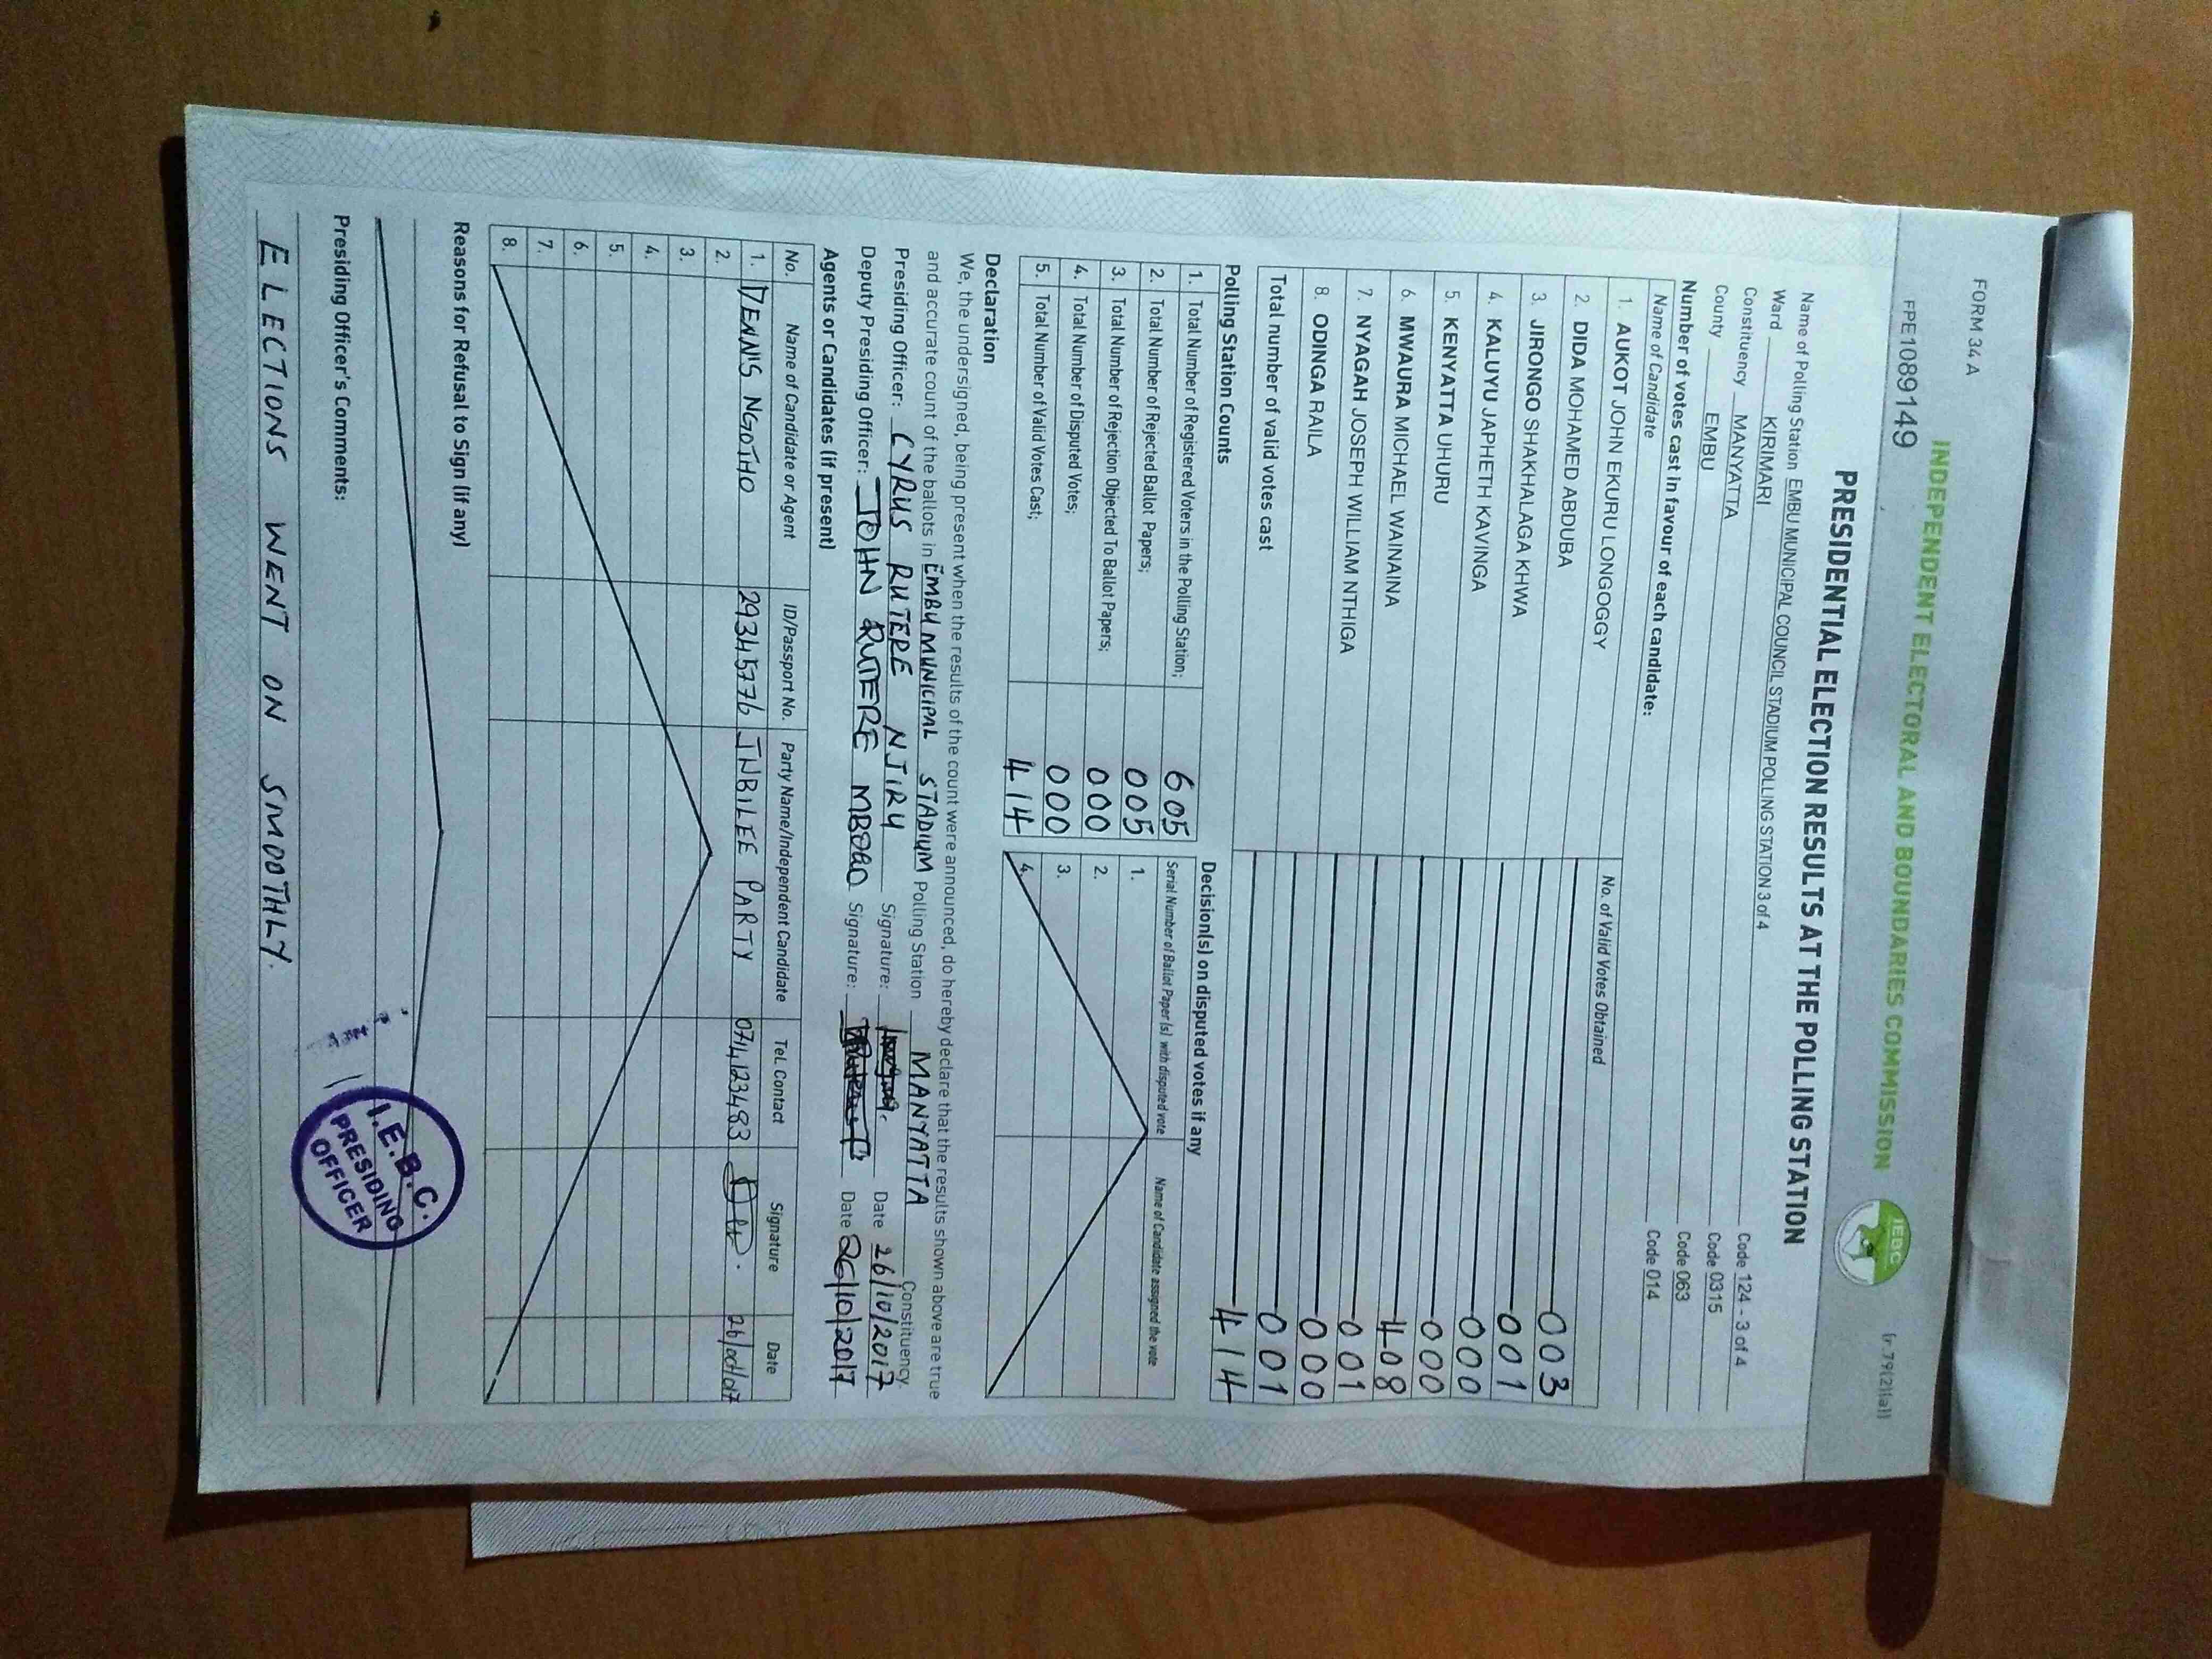 FORM 34 A
(r.79(2)(a))
INDEPENDENT ELECTORAL AND BOUNDARIES COMMISSION
IEBC
FPE1089149
PRESIDENTIAL ELECTION RESULTS AT THE POLLING STATION
Name of Polling Station EMBU MUNICIPAL COUNCIL STADIUM POLLING STATION 3 of 4 Code 124 - 3 of 4
Ward KIRIMARI Code 0315
Constituency MANYATTA Code 063
County EMBU Code 014
Number of votes cast in favour of each candidate:
Name of Candidate No. of Valid Votes Obtained
1. AUKOT JOHN EKURU LONGOGGY 003
2. DIDA MOHAMED ABDUBA 001
3. JIRONGO SHAKHALAGA KHWA 000
4. KALUYU JAPHETH KAVINGA 000
5. KENYATTA UHURU 408
6. MWAURA MICHAEL WAINAINA 001
7. NYAGAH JOSEPH WILLIAM NTHIGA 000
8. ODINGA RAILA 001
Total number of valid votes cast 414
Polling Station Counts
1. Total Number of Registered Voters in the Polling Station; 605
2. Total Number of Rejected Ballot Papers; 005
3. Total Number of Rejection Objected To Ballot Papers; 000
4. Total Number of Disputed Votes; 000
5. Total Number of Valid Votes Cast; 414
Decision(s) on disputed votes if any
Serial Number of Ballot Paper (s) with disputed vote Name of Candidate assigned the vote
1.
2.
3.
4.
Declaration
We, the undersigned, being present when the results of the count were announced, do hereby declare that the results shown above are true
and accurate count of the ballots in EMBU MUNICIPAL STADIUM Polling Station MANYATTA Constituency.
Presiding Officer: CYRUS RUTERE NJIRU Signature: Date 26/10/2017
Deputy Presiding Officer: JOHN RUTERE MBOGO Signature: Date 26/10/2017
Agents or Candidates (if present)
No. Name of Candidate or Agent ID/Passport No. Party Name/Independent Candidate Tel. Contact Signature Date
1. DENNIS NGOTHO 29345776 JUBILEE PARTY 0714123483
2.
3.
4.
5.
6.
7.
8.
Reasons for Refusal to Sign (if any)
Presiding Officer's Comments:
ELECTIONS WENT ON SMOOTHLY.
I.E.B.C.
PRESIDING
OFFICER